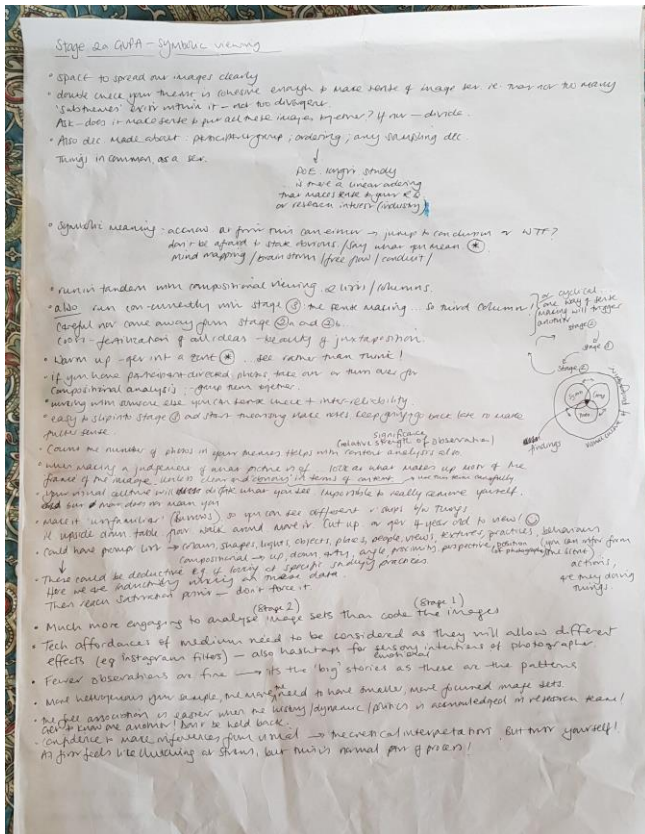 Stage 2a GVPA - Symbolic viewing
• Space to spread out images clearly
• double check your theme is cohesive enough to make sense of image set ie. that not too many
'subthemes' exist within it - not too divergent.
Ask - does it make sense to put all these images together? If not - divide.
• Also dec. made about participant group, ordering, any sampling dec.
Things in common, as a set.
study
is there a linear ordering
that makes sense to your RQ
or research interest (industry)
• Symbolic meaning - at first this can either → jump to conclusion or WTF?
don't be afraid to state obvious / say what you mean *
mind mapping / brain storm / free flow / conduit /
• run in tandem with compositional viewing. 2 lists / columns.
• also run con-currently with stage 3 the sense making ... so third column
Careful not come away from stage 2a and 2b.
Cross-fertilization of all ideas - beauty of juxtaposition.
or cyclical
one way of sense
making will trigger
another
stage
stage
stage
• Warm up - get into a zone * ... see rather than think!
• If you have participant-directed photos take out or turn over for
compositional analysis - group them together.
• working with someone else you can sense check + inter-reliability.
• easy to slip into stage 3 and start theorising make notes keep going go back later to make
fuller sense.
findings
visual culture
• Count the number of photos in your themes. Helps with content analysis also.
significance
(relative strength of observation)
• when making a judgement of what picture is of ... look at what makes up most of the
frame of the image, unless clear and obvious in terms of content
• your visual culture will dictate what you see. Impossible to really remove yourself.
does not mean you
• Make it 'unfamiliar' so you can see different
upside down, table, floor, walk around, move it. Cut up or get 4 year old to view! ☺
• Could have prompt list → colours, shapes, lights, objects, places, people, views, textures, practices, behaviours
compositional → up, down, angle, proximity, perspective, position
(you can infer from
the scene)
actions,
are they doing
things.
• There could be deductive e.g. if looking at specific practices.
Here we are inductively working on these data.
Then reach saturation point - don't force it
(Stage 2) (Stage 1)
• Much more engaging to analyse image sets than code the images
• Tech affordances of medium need to be considered as they will allow different
effects (eg Instagram filter) - also hashtags for intentions of photographer.
emotional
• Fewer observations are fine → its the 'big' stories as these are the patterns
• More heterogenous your sample, the more the need to have smaller, more focused image sets.
• The free association is easier when the history/dynamic/politics is acknowledged in research team!
Get to know one another! Don't be held back.
• Confidence to make inferences from visual → theoretical interpretations. But trust yourself!
At first feels like clutching at straws, but this is normal part of process!